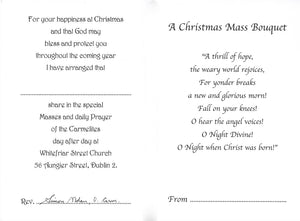 For your happiness at Christmas
and that God may
bless and protect you
throughout the coming year
I have arranged that
share in the special
Masses and daily Prayer
of the Carmelites
day after day at
Whitefriar Street Church
56 Aungier Street, Dublin 2.
Rev.
A Christmas Mass Bouquet
"A thrill of hope,
the weary world rejoices,
For yonder breaks
a new and glorious morn!
Fall on your knees!
O hear the angel voices!
O Night Divine!
O Night when Christ was born!"
From